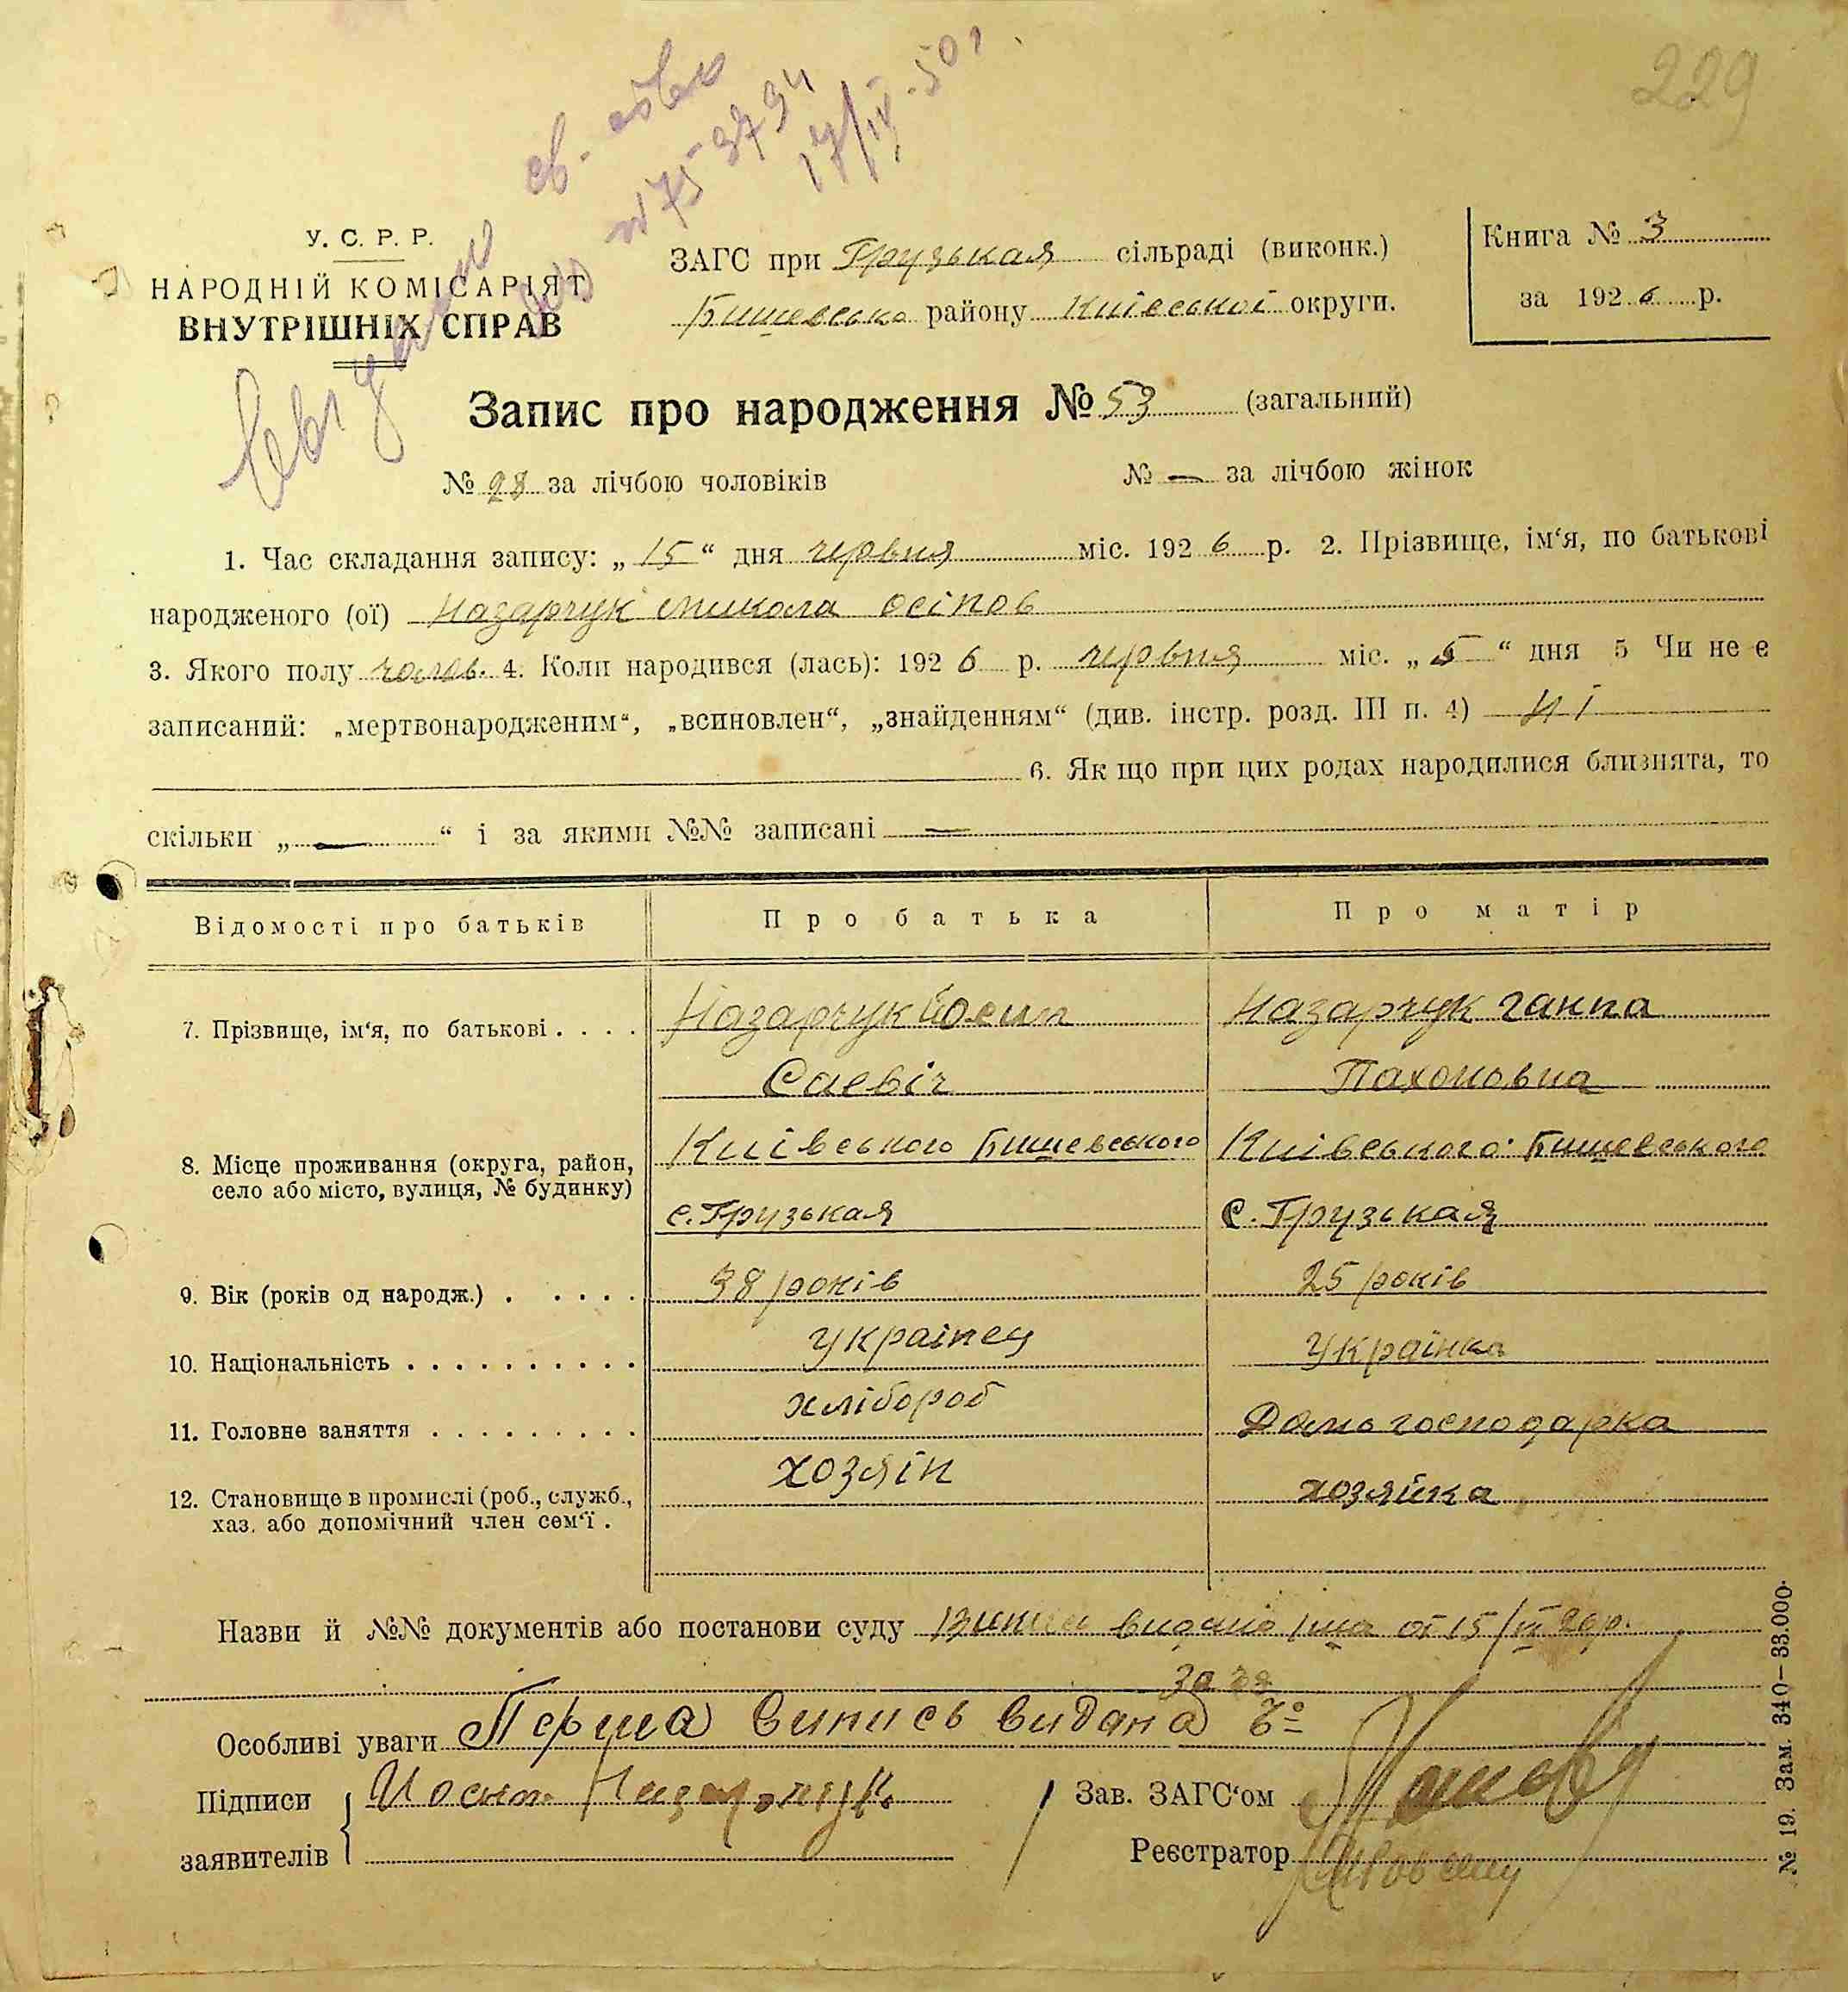 229
У. С. Р. Р.
НАРОДНІЙ КОМІСАРІЯТ
ВНУТРІШНІХ СПРАВ
№ 75 3794
17/IX-50 г.
ЗАГС при Грузькая сільраді (виконк.)
Бишевсько району Київської округи.
Книга № 3
за 1926 р.
Запис про народження № 53 (загальний)
№ 28 за лічбою чоловіків № — за лічбою жінок
1. Час складання запису: „15“ дня червня міс. 1926 р. 2. Прізвище, ім‘я, по батькові
народженого (ої) Назарчук Микола Осіпов
3. Якого полу чолов. 4. Коли народився (лась): 1926 р. червня міс. „5“ дня 5 Чи не є
записаний: „мертвонародженим“, „всиновлен“, „знайденням“ (див. інстр. розд. III п. 4) Ні
6. Як що при цих родах народилися близнята, то
скільки „—“ і за якими №№ записані —
Відомості про батьків Про батька Про матір
7. Прізвище, ім‘я, по батькові . . . . Назарчук Йосип Назарчук Ганна
Саевіч Пахомовна
8. Місце проживання (округа, район, село або місто, вулиця, № будинку) Київського Бишевського Київського Бишевського
с. Грузькая с. Грузькая
9. Вік (років од народж.) . . . . . 38 років 25 років
10. Національність . . . . . . . . . . українец Українка
11. Головне заняття . . . . . . . . . хлібороб Домогосподарка
12. Становище в промислі (роб., служб., хаз. або допомічний член сем‘ї . хозяін хозяйка
Назви й №№ документів або постанови суду видано от 15/
Особливі уваги Перша випись видана
Підписи заявителів Иосип Назарчук
Зав. ЗАГС‘ом
Реєстратор
№ 19. Зам. 340—33.000.